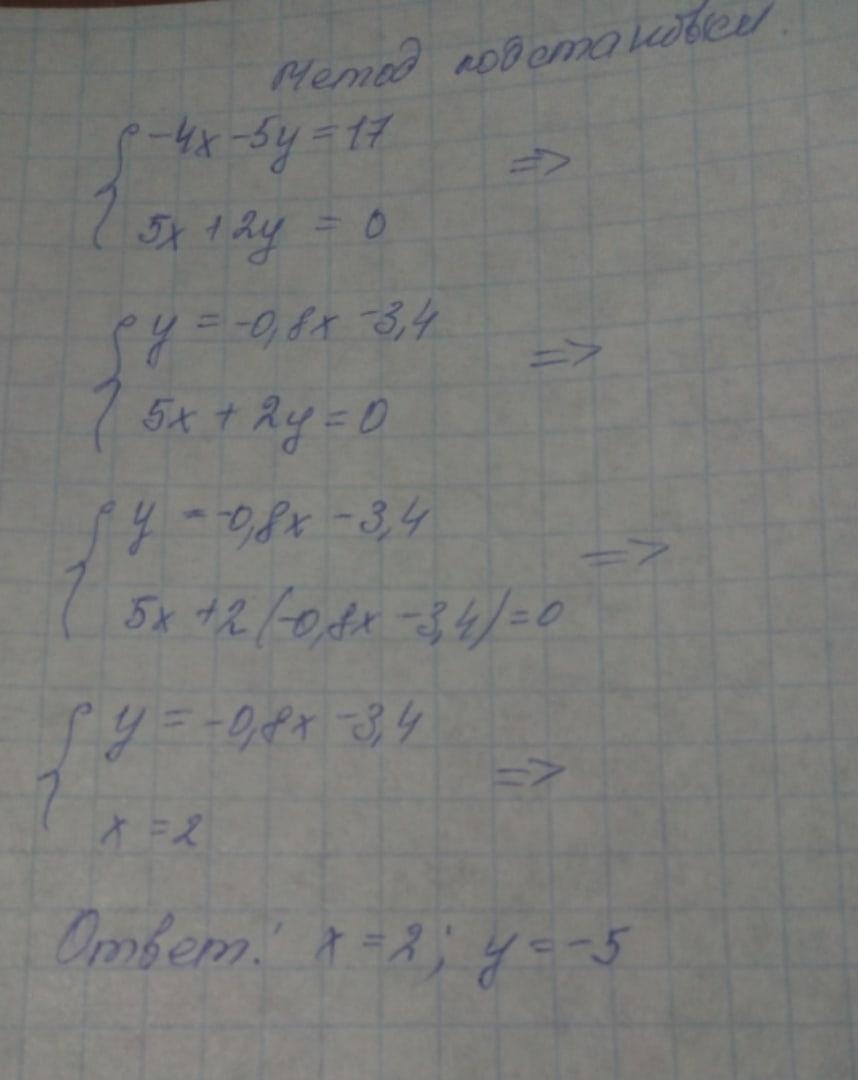 Метод подстановки.
{ -4x - 5y = 17 =>
5x + 2y = 0
{ y = -0,8x - 3,4 =>
5x + 2y = 0
{ y = -0,8x - 3,4 =>
5x + 2(-0,8x - 3,4) = 0
{ y = -0,8x - 3,4 =>
x = 2
Ответ: x = 2; y = -5